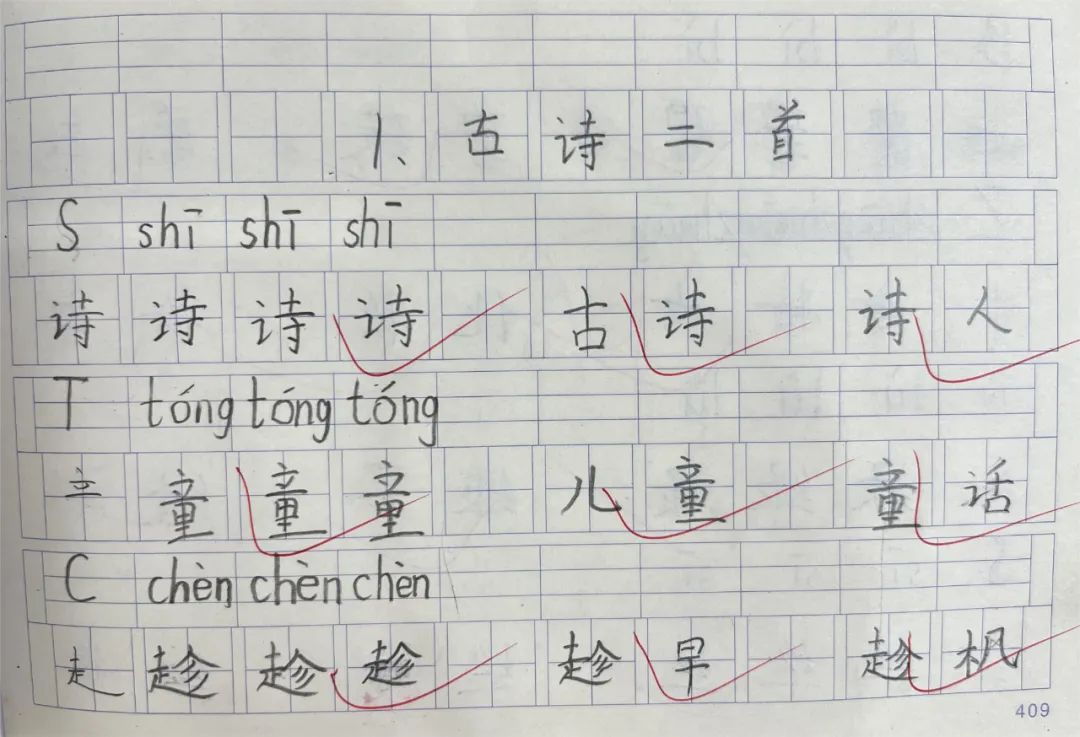 1、古诗二首
S shī shī shī
诗 诗 诗 诗 古诗 诗人
T tóng tóng tóng
立 童 童 童 儿童 童话
C chèn chèn chèn
走 趁 趁 趁 趁早 趁枫
409